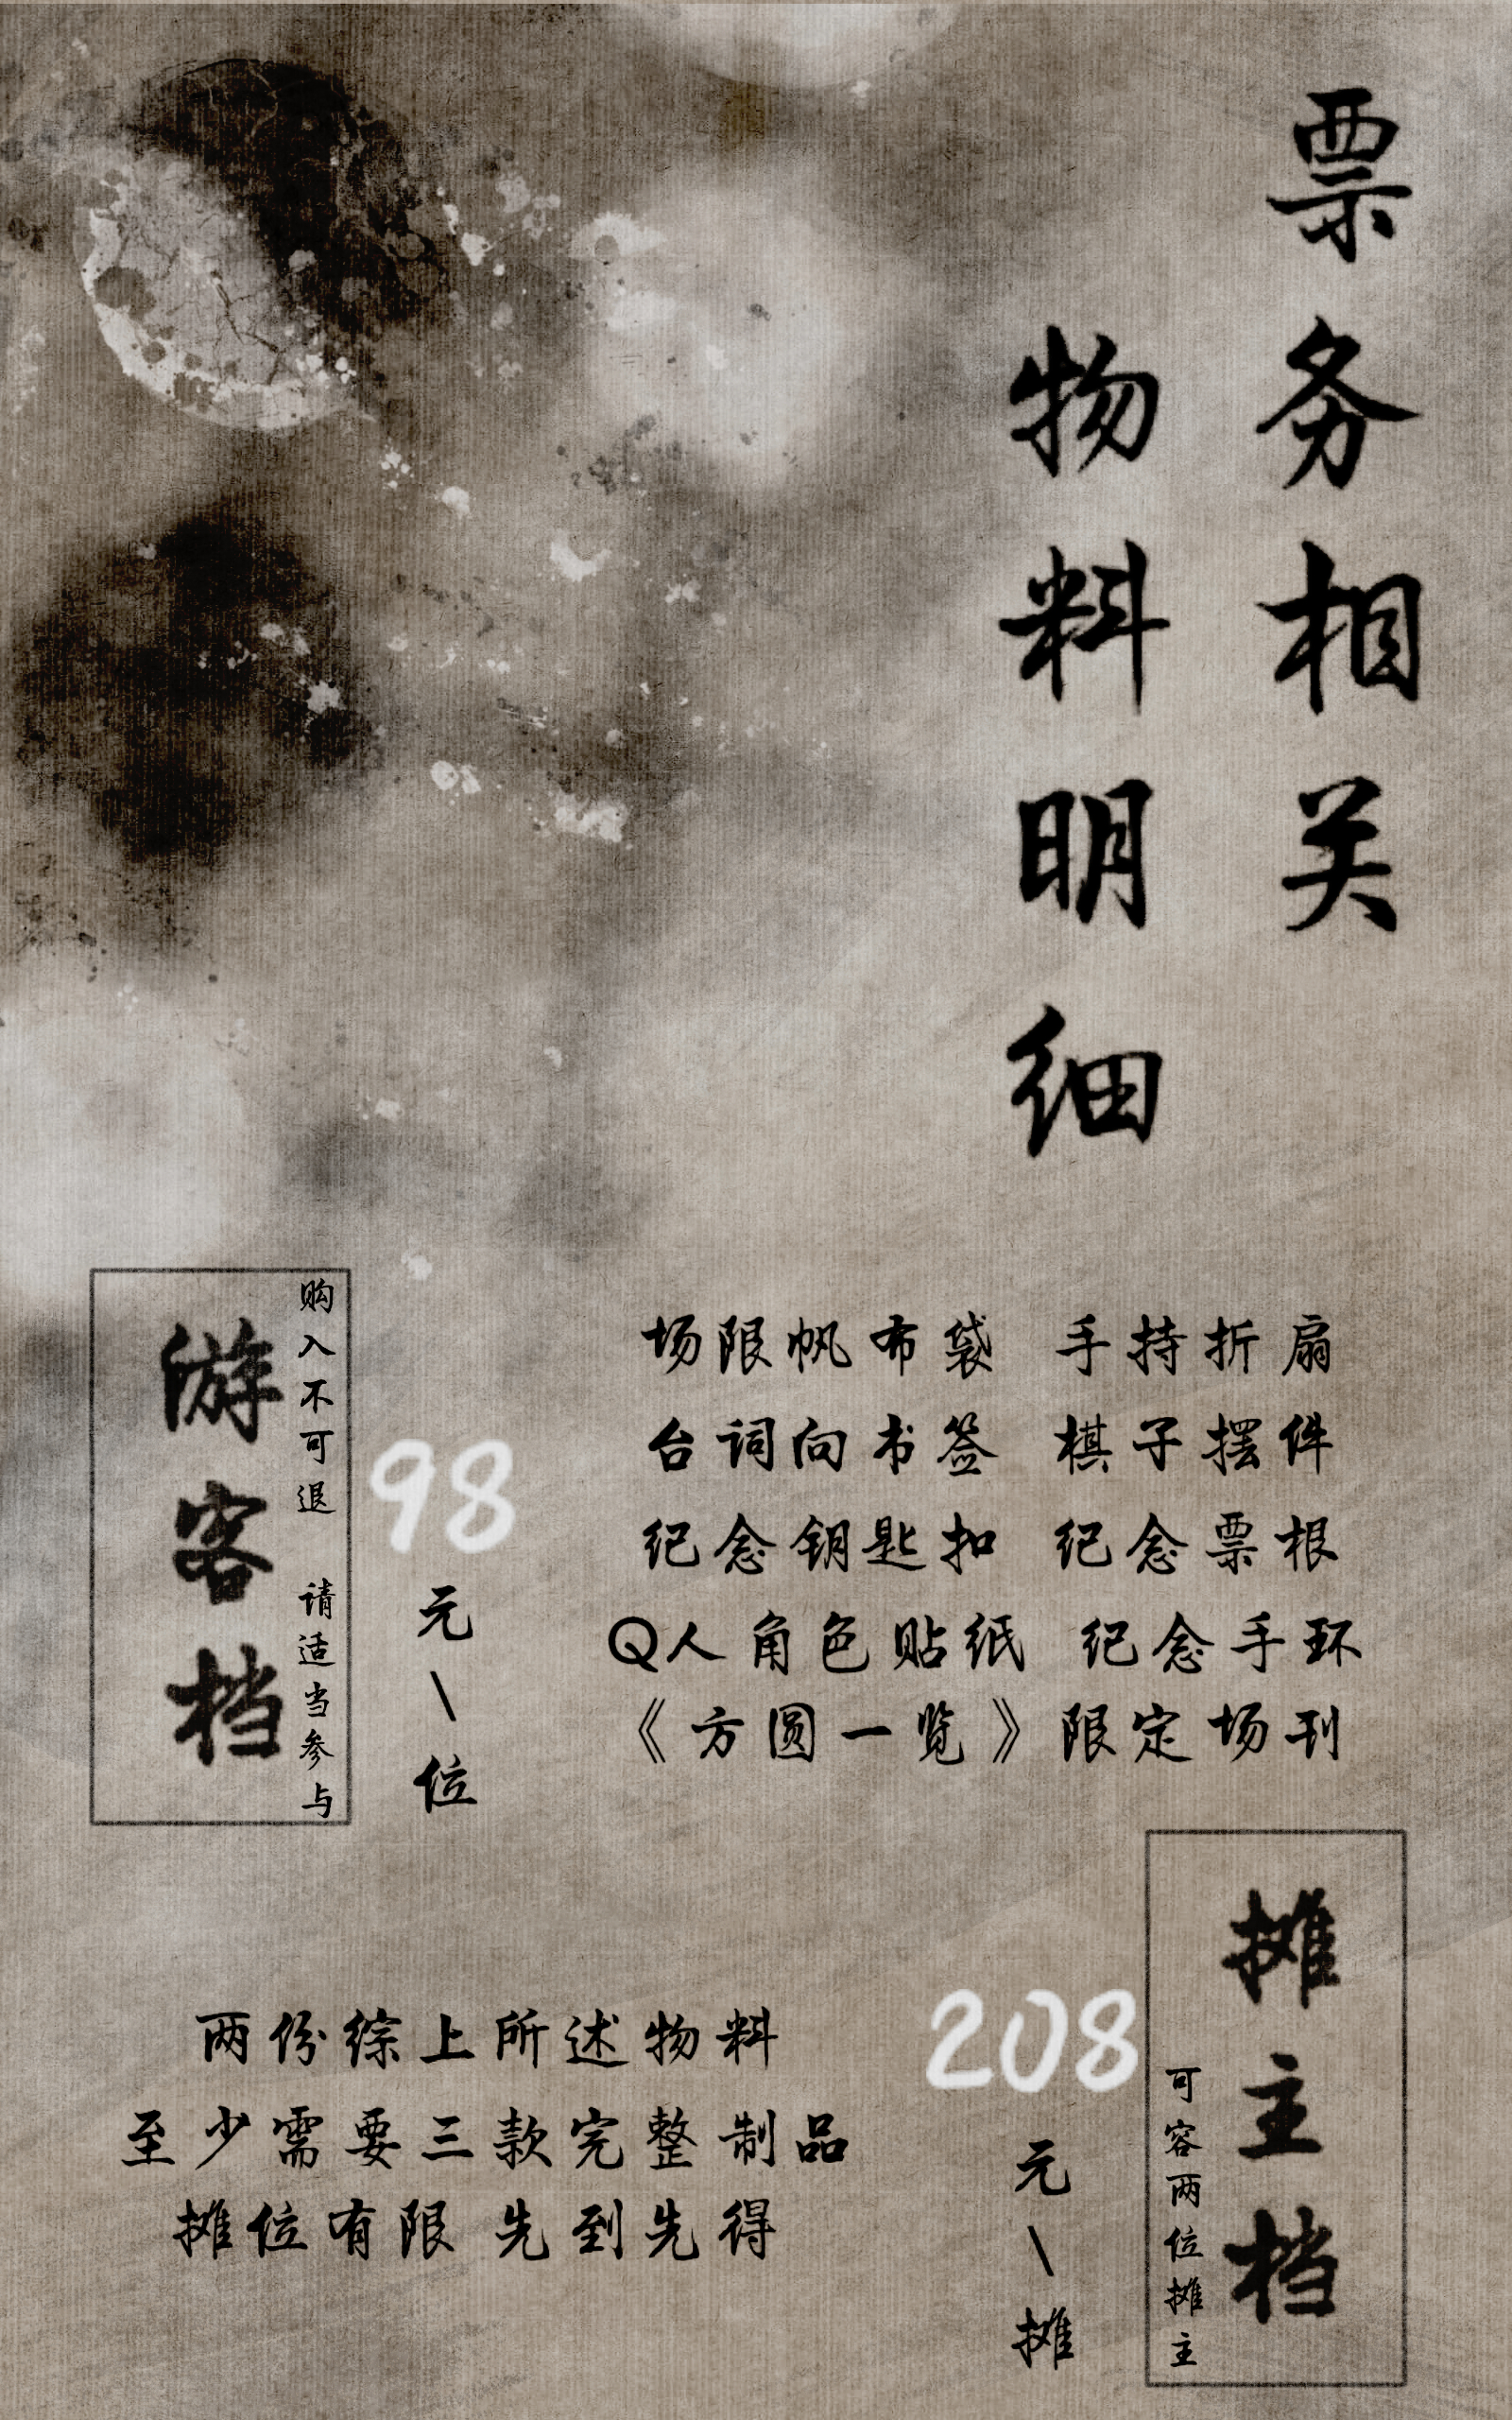 票务相关
物料明细
游客档
购入不可退 请适当参与
98
元\位
场限帆布袋 手持折扇
台词向书签 棋子摆件
纪念钥匙扣 纪念票根
Q人角色贴纸 纪念手环
《方圆一览》限定场刊
摊主档
可容两位摊主
208
元\摊
两份综上所述物料
至少需要三款完整制品
摊位有限 先到先得